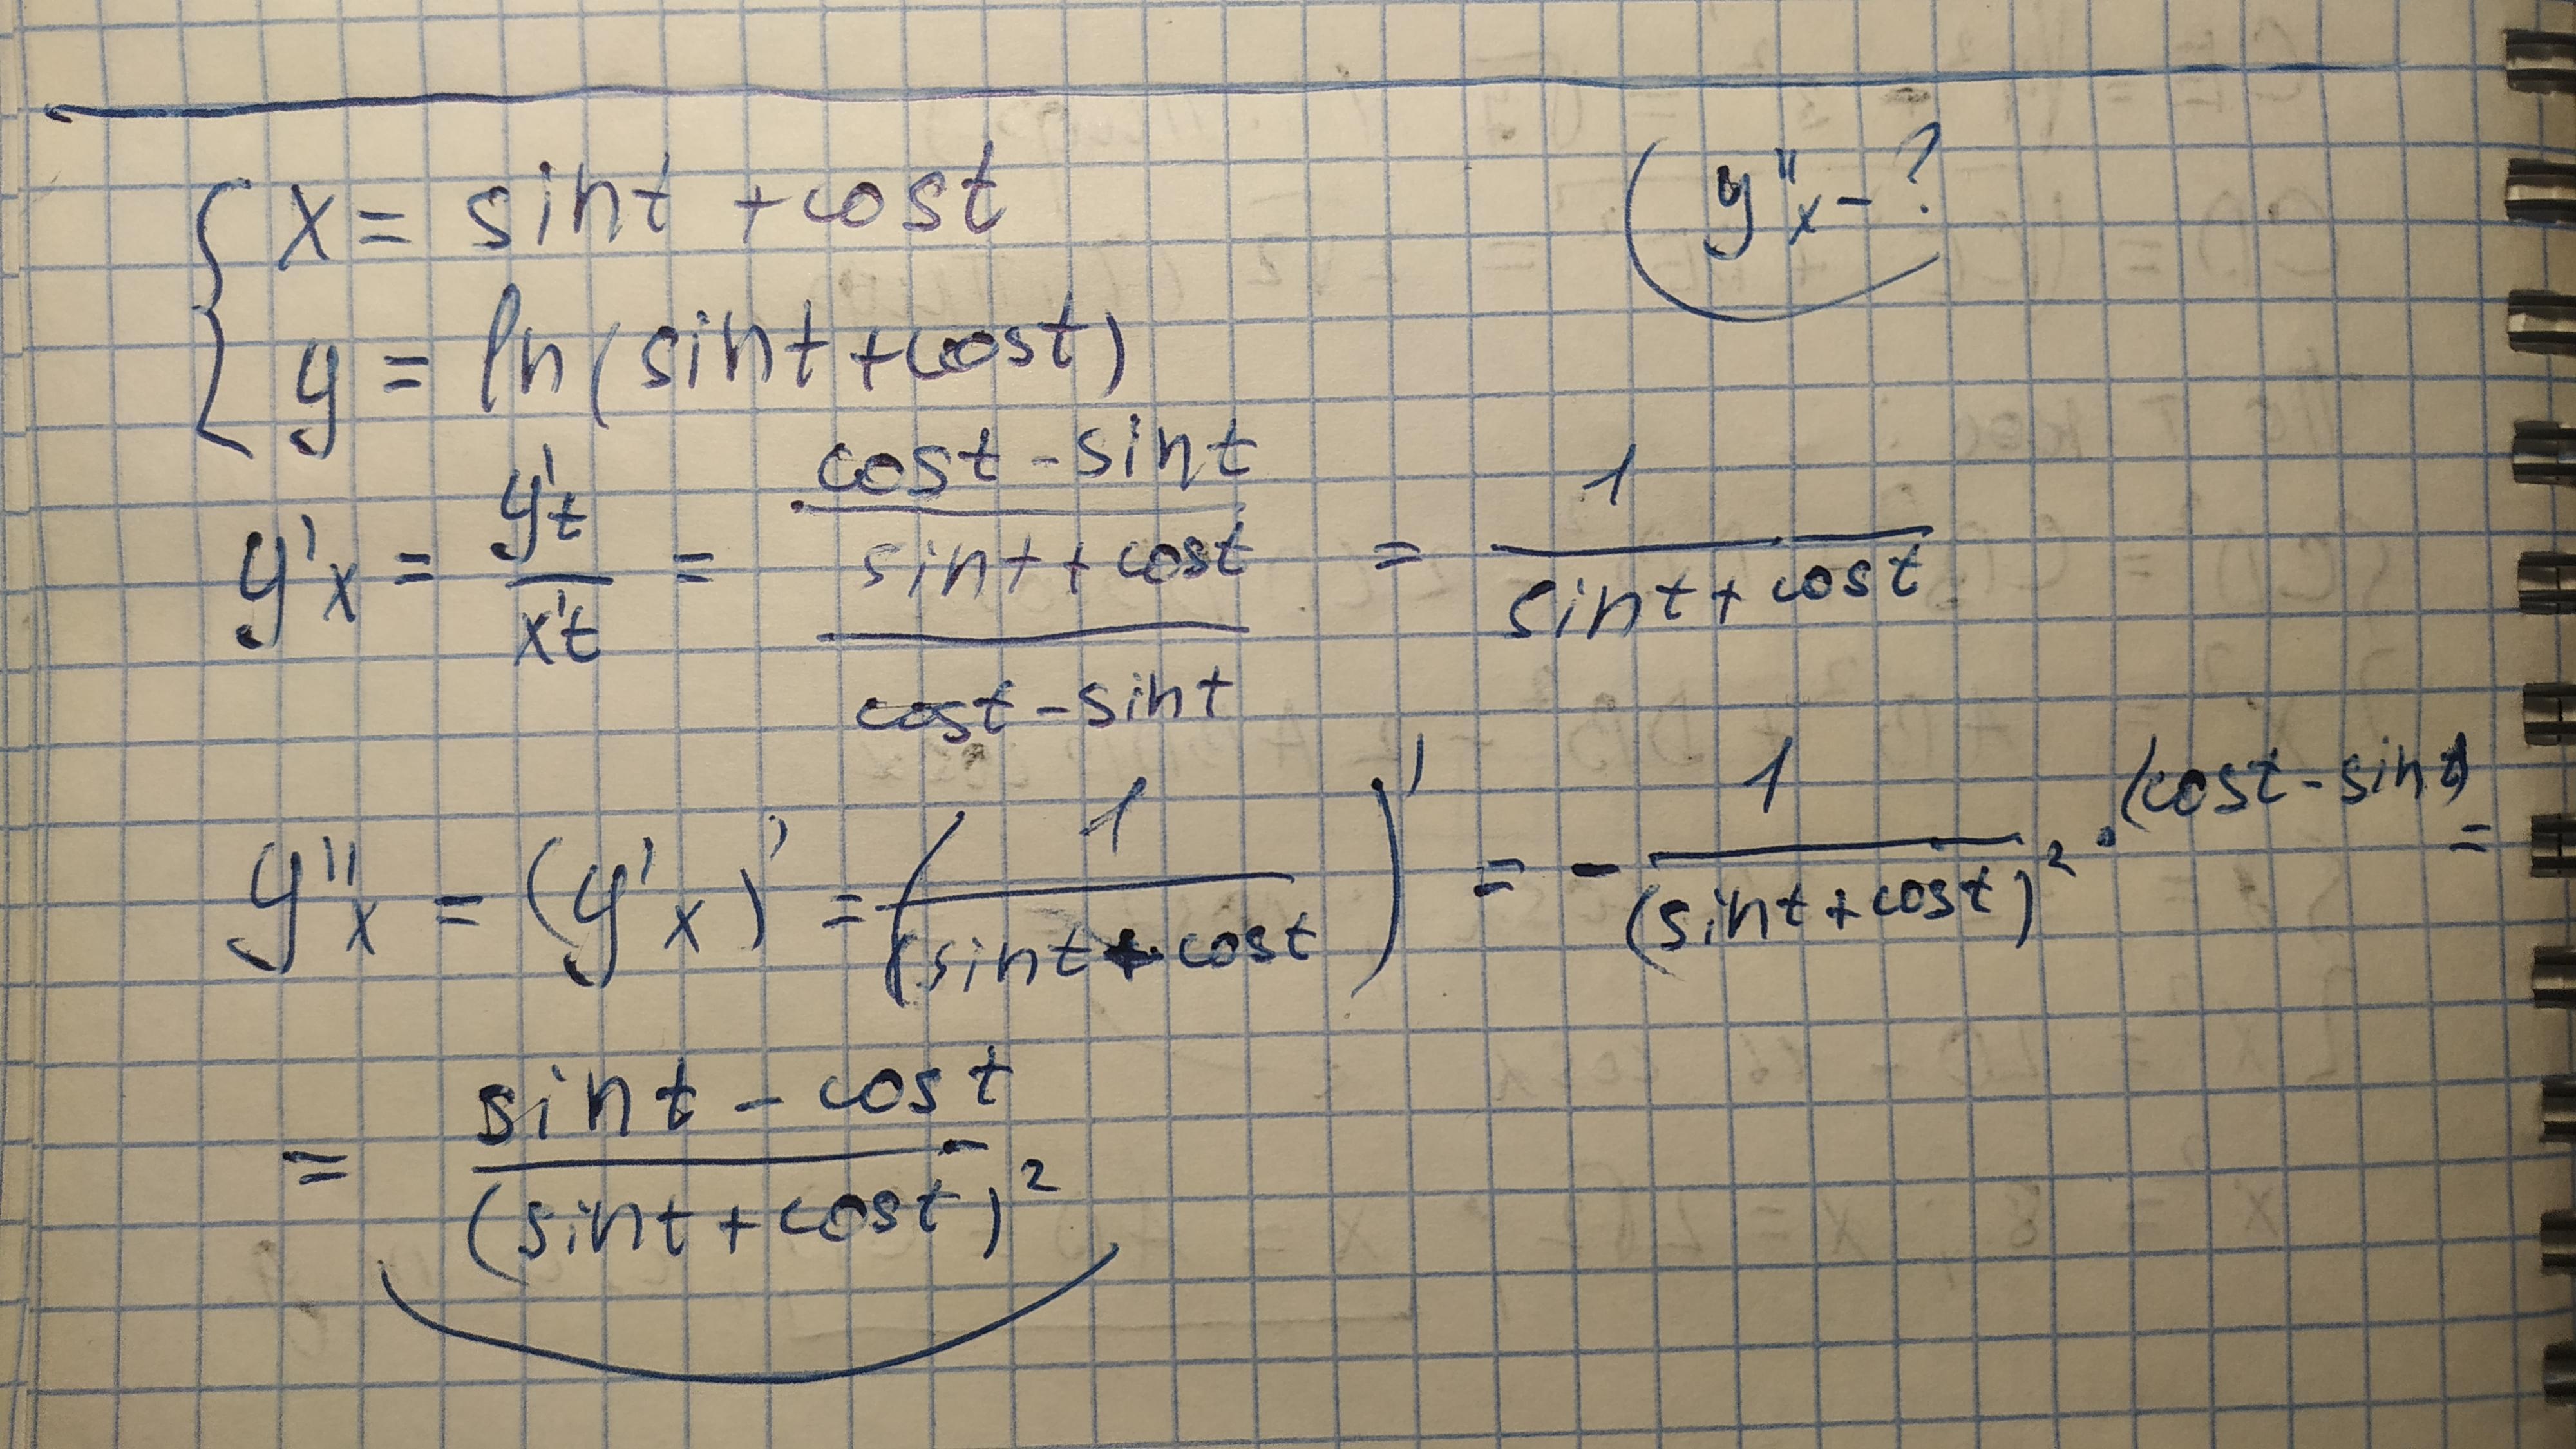 x = sint + cost
y''x - ?
y = ln(sint + cost)
y'x = y't / x't = ((cost - sint) / (sint + cost)) / (cost - sint) = 1 / (sint + cost)
y''x = (y'x)' = (1 / (sint + cost))' = - 1 / (sint + cost)² · (cost - sint) =
= (sint - cost) / (sint + cost)²